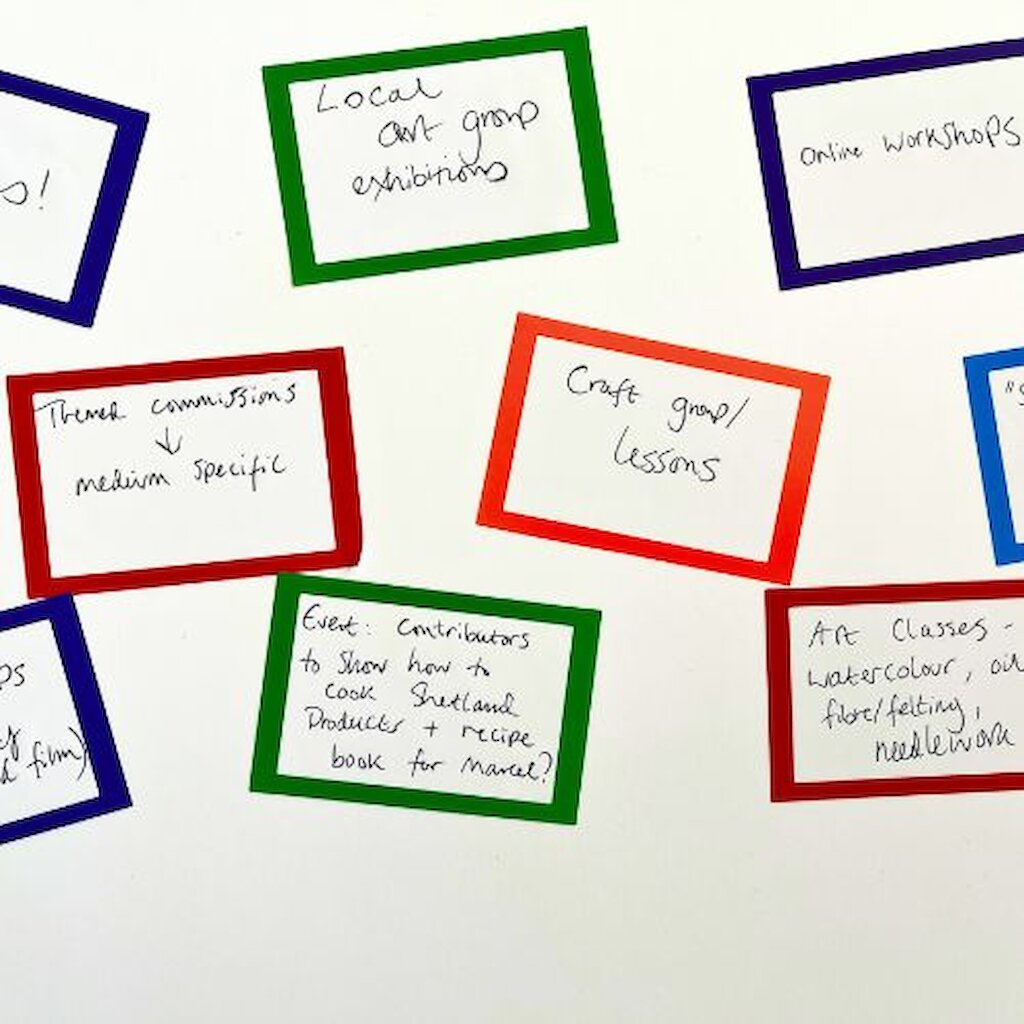 s!
Local
art group
exhibitions
Online WorkShoPS
Themed commissions
↓
medium specific
Craft group/
lessons
"S
ps
film)
Event: Contributors
to show how to
cook Shetland
Products + recipe
book for Marcel?
Art Classes -
watercolour, oil
fibre/felting,
needlework